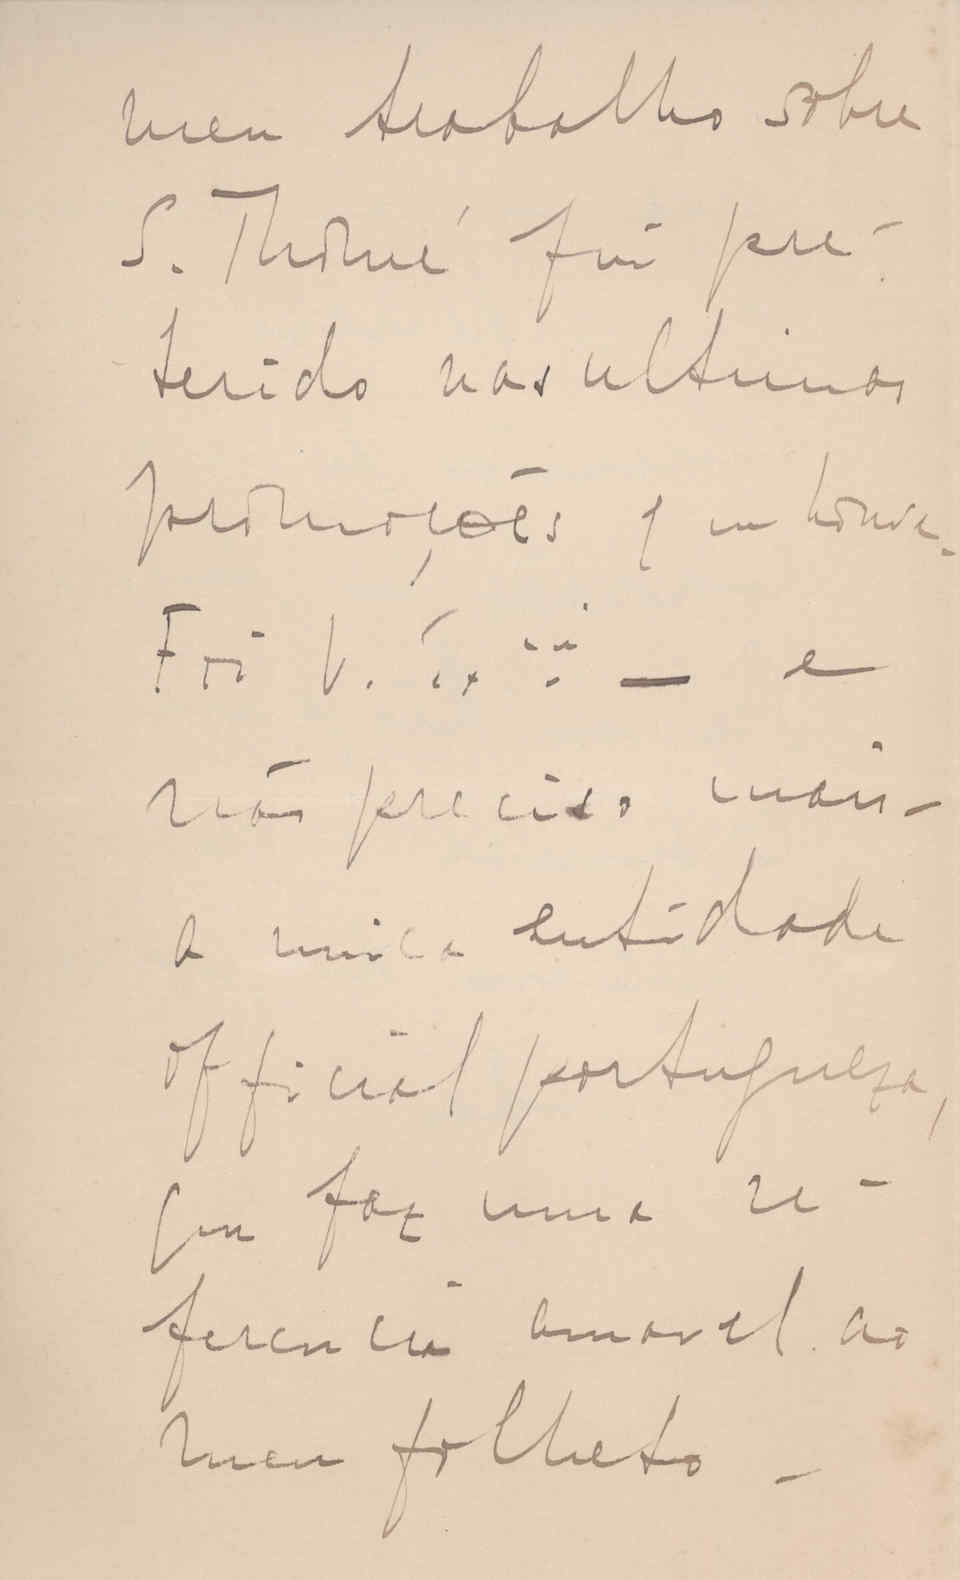 meu trabalho sobre
S. Thomé fui pre-
terido nas ultimas
promoções q un houve.
Foi V. Exª — e
não preciso mais –
a unica entidade
official portugueza,
que faz uma re-
ferencia amavel ao
meu folheto –